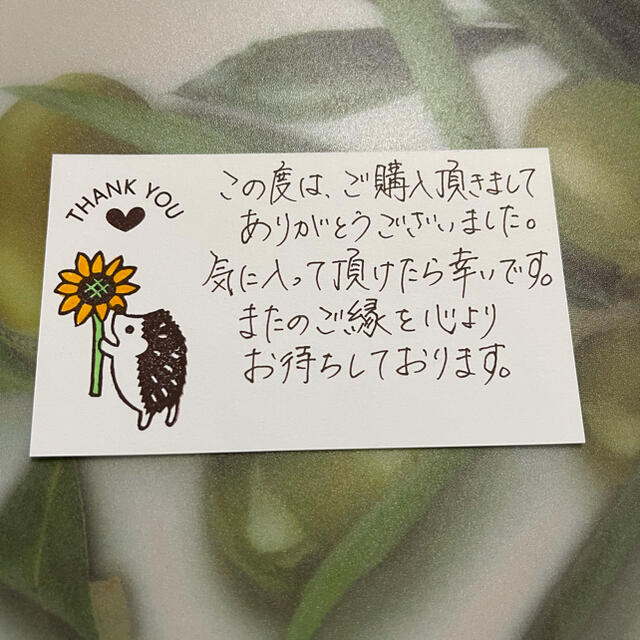 THANK YOU
この度は、ご購入頂きまして
ありがとうございました。
気に入って頂けたら幸いです。
またのご縁を心より
お待ちしております。